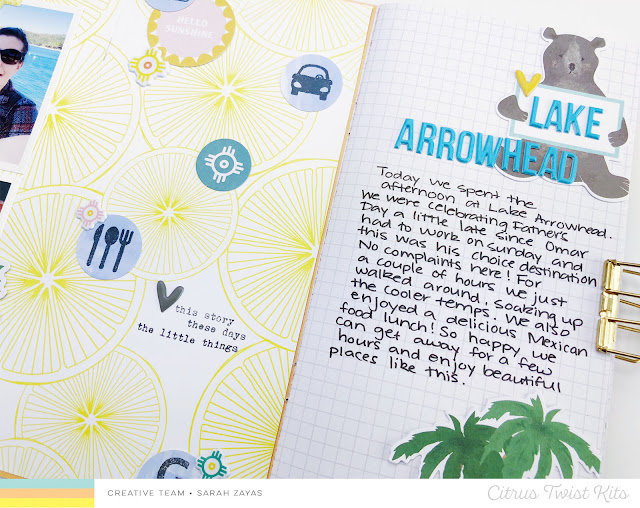 HELLO
SUNSHINE
this story
these days
the little things
LAKE
ARROWHEAD
Today we spent the
afternoon at Lake Arrowhead.
We were celebrating Father's
Day a little late since Omar
had to work on Sunday and
this was his choice destination
No complaints here! For
a couple of hours we just
walked around, soaking up
the cooler temps. We also
enjoyed a delicious Mexican
food lunch! So happy we
can get away for a few
hours and enjoy beautiful
places like this.
CREATIVE TEAM • SARAH ZAYAS
Citrus Twist Kits